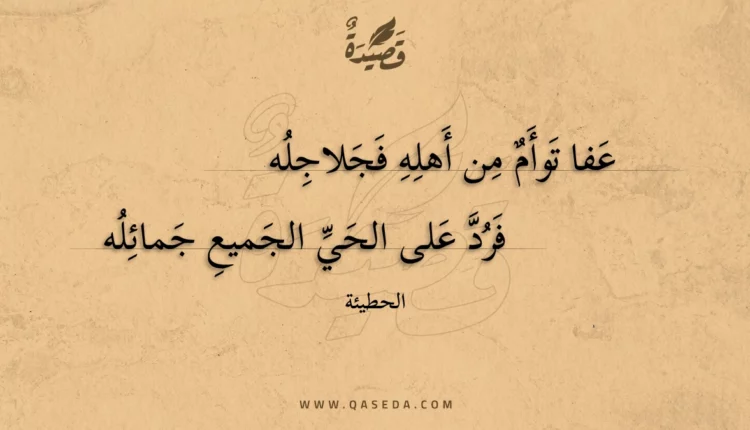 قَصِيدَةٌ
عَفا تَوأَمٌ مِن أَهلِهِ فَجَلاجِلُه
فَرُدَّ عَلى الحَيِّ الجَميعِ جَمائِلُه
الحطيئة
WWW.QASEDA.COM